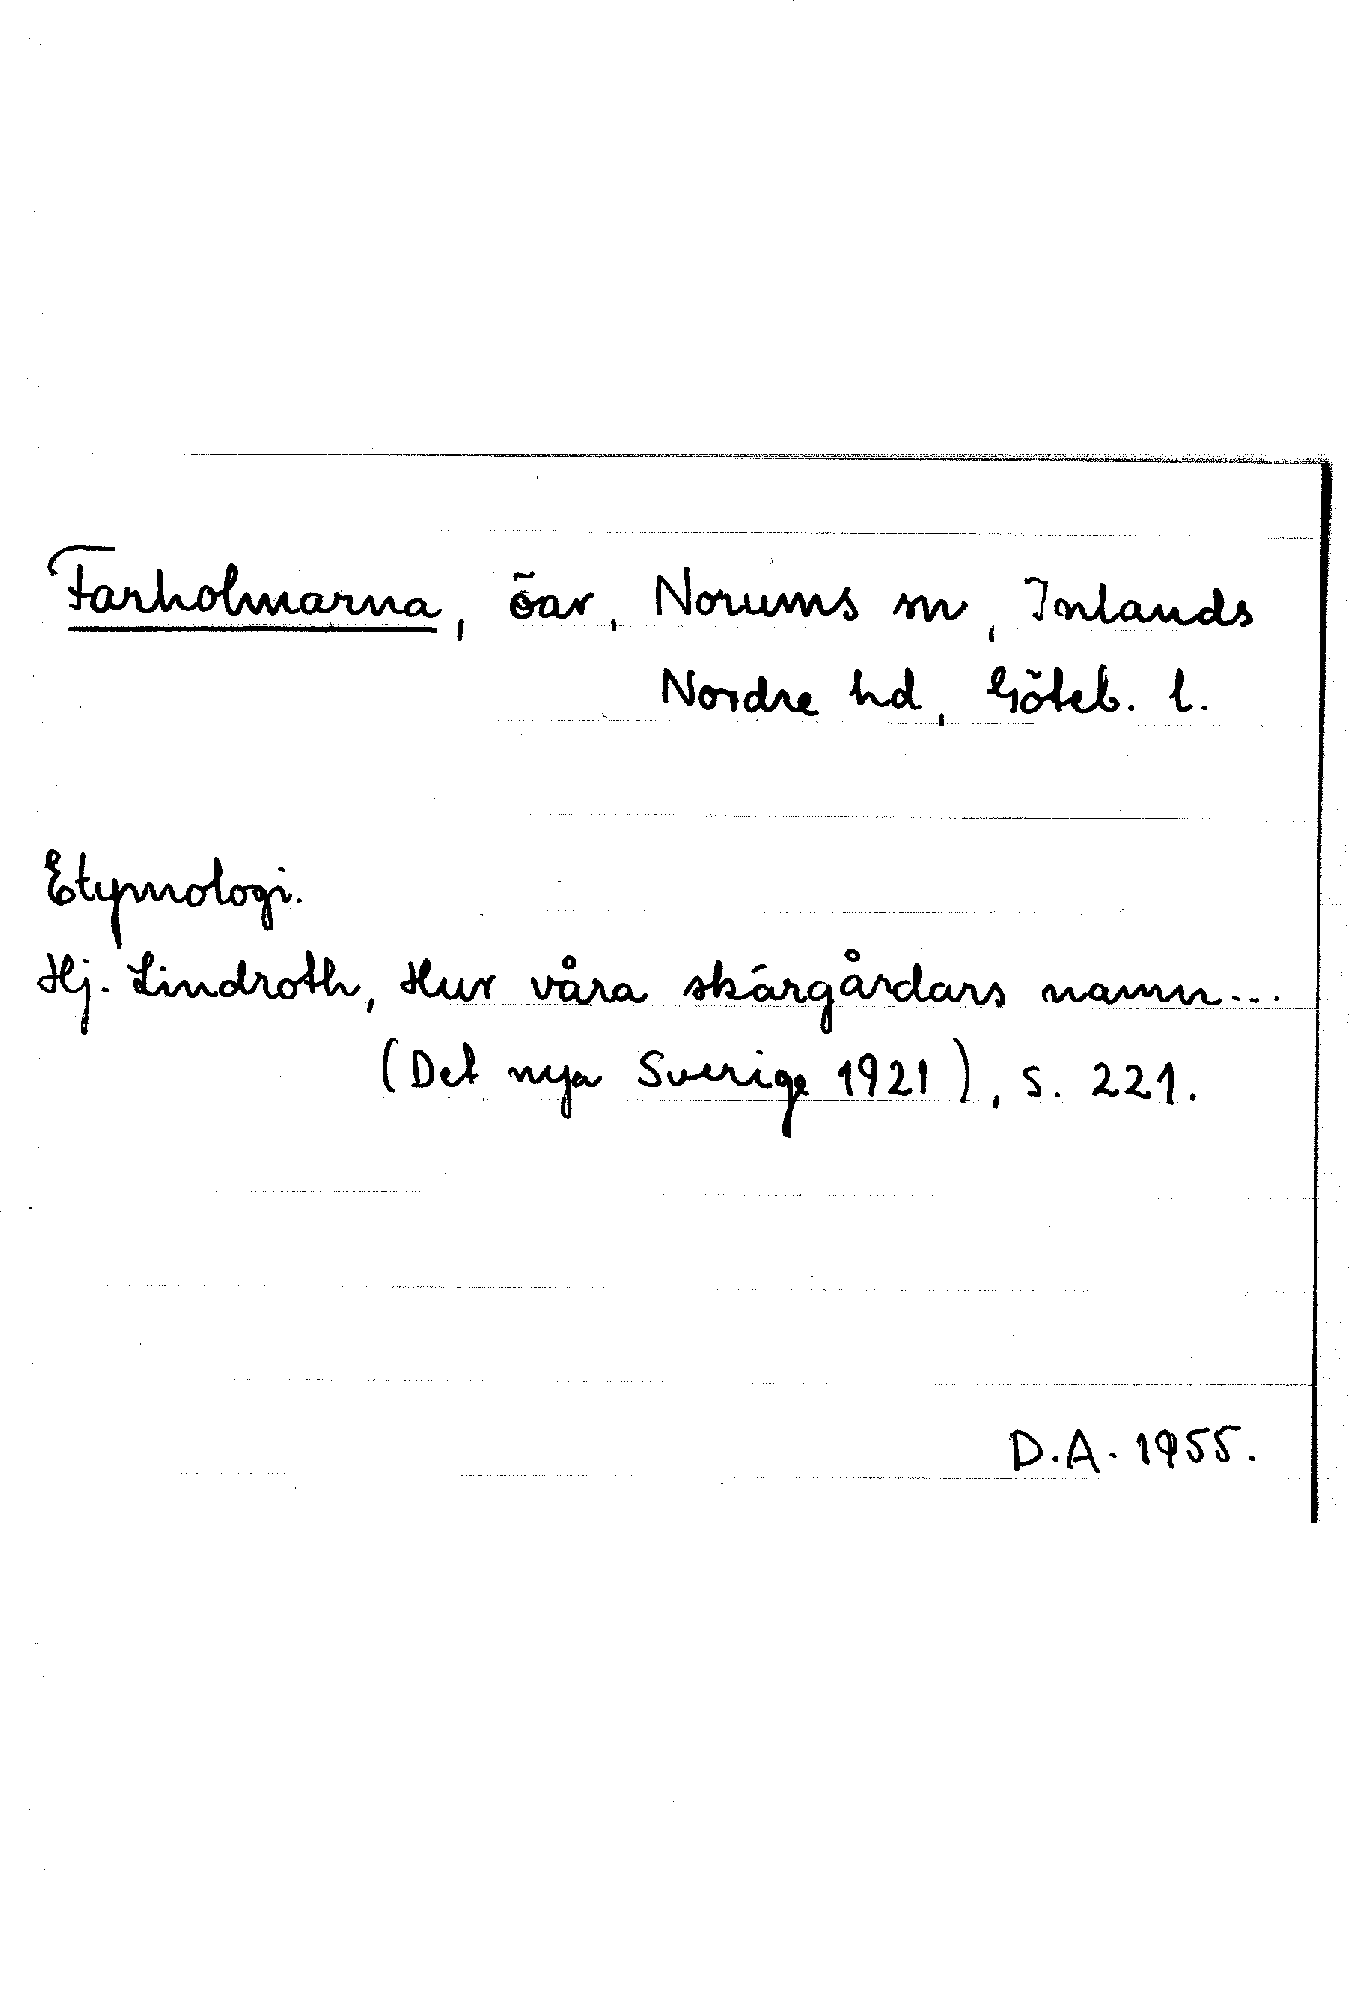 Farholmarna, öar, Norums sn, Inlands
Nordre hd, Göteb. l.
Etymologi.
Hj. Lindroth, Hur våra skärgårdars namn...
(Det nya Sverige 1921), s. 221.
D.A. 1955.